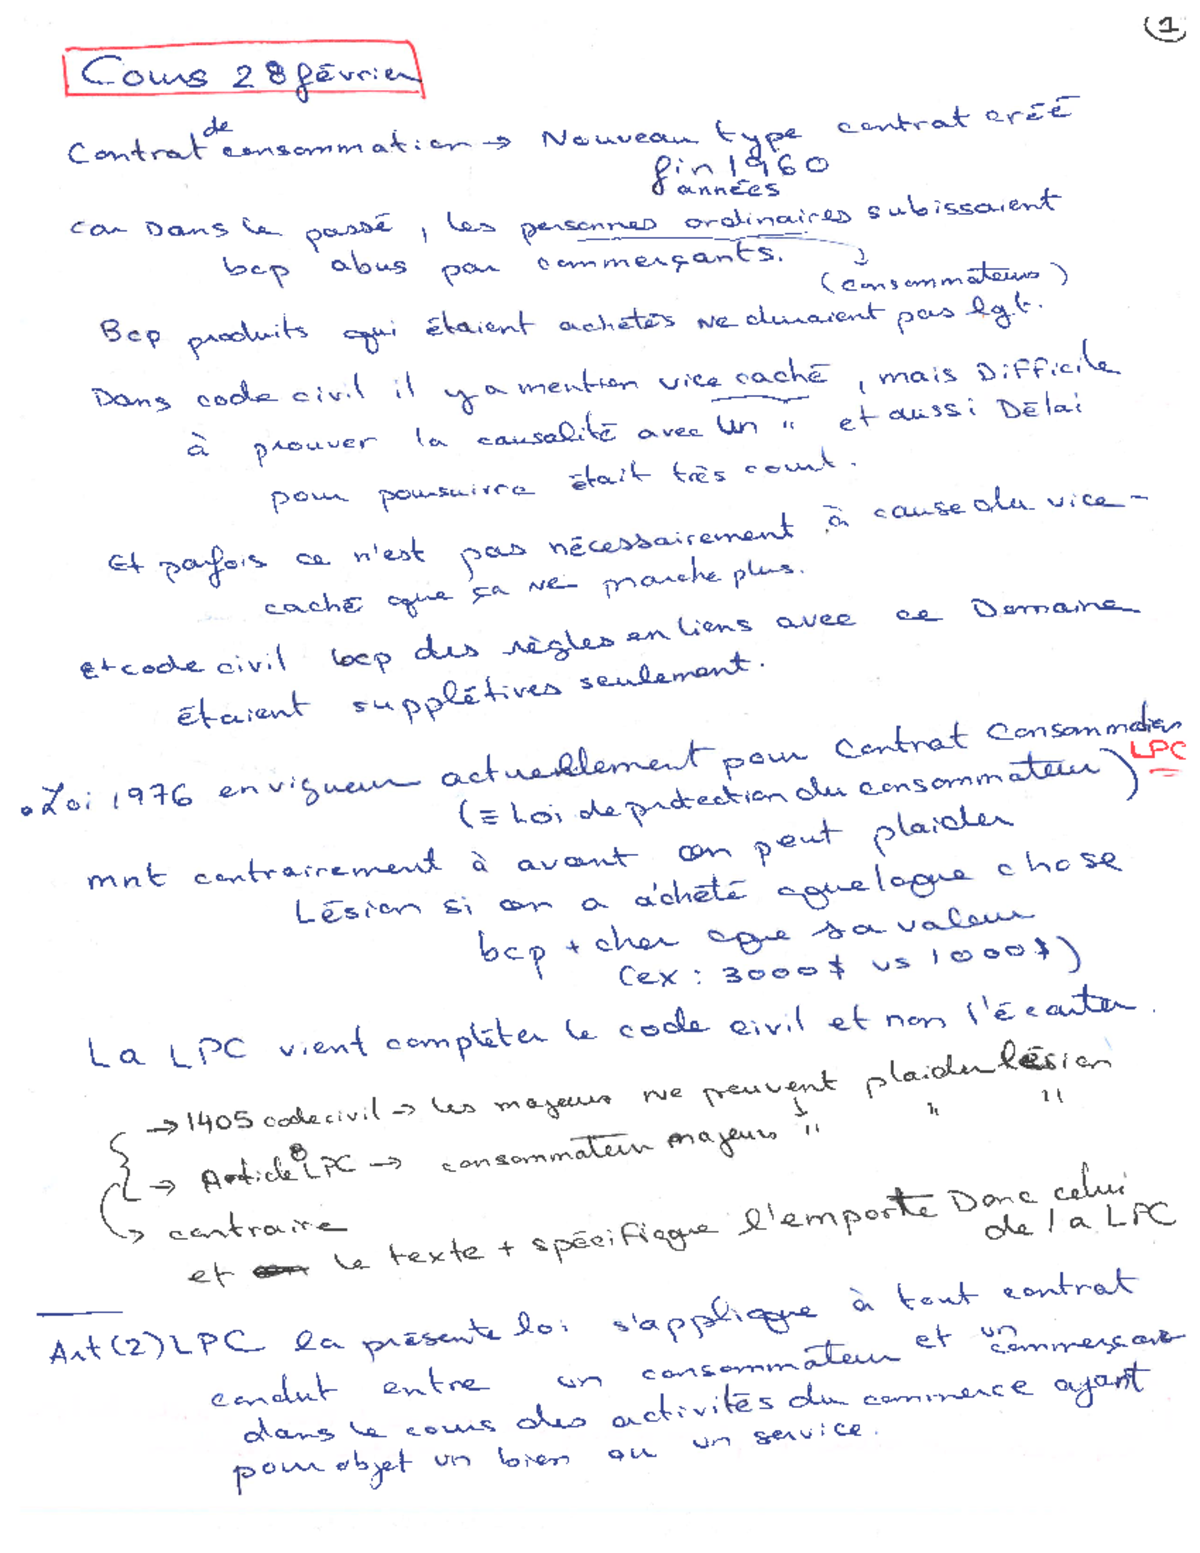 1
Cours 28 février
Contrat de consommation → Nouveau type contrat créé
fin 1960
années
car Dans le passé, les personnes ordinaires subissaient
bcp abus par commerçants.
(consommateurs)
Bcp produits qui étaient achetés Ne duraient pas lgt.
Dans code civil il y a mention vice caché, mais Difficile
à prouver la causalité avec un " et aussi Délai
pour poursuivre était très court.
Et parfois ce n'est pas nécessairement à cause du vice-
caché que ça Ne marche plus.
et code civil bcp des règles en liens avec ce Domaine
étaient supplétives seulement.
• Loi 1976 en vigueur actuellement pour Contrat Consommation
(≡ Loi de protection du consommateur) LPC
mnt contrairement à avant on peut plaider
Lésion si on a acheté quelque chose
bcp + cher que sa valeur
(ex : 3000$ vs 1000$)
La LPC vient compléter le code civil et non l'écarter.
→ 1405 code civil → les majeurs ne peuvent plaider lésion
→ Article 8 LPC → consommateur majeurs " " "
↳ contraire
et le texte + spécifique l'emporte Donc celui
de la LPC
Art (2) LPC la présente loi s'applique à tout contrat
conclut entre un consommateur et un commerçant
dans le cours des activités du commerce ayant
pour objet un bien ou un service.